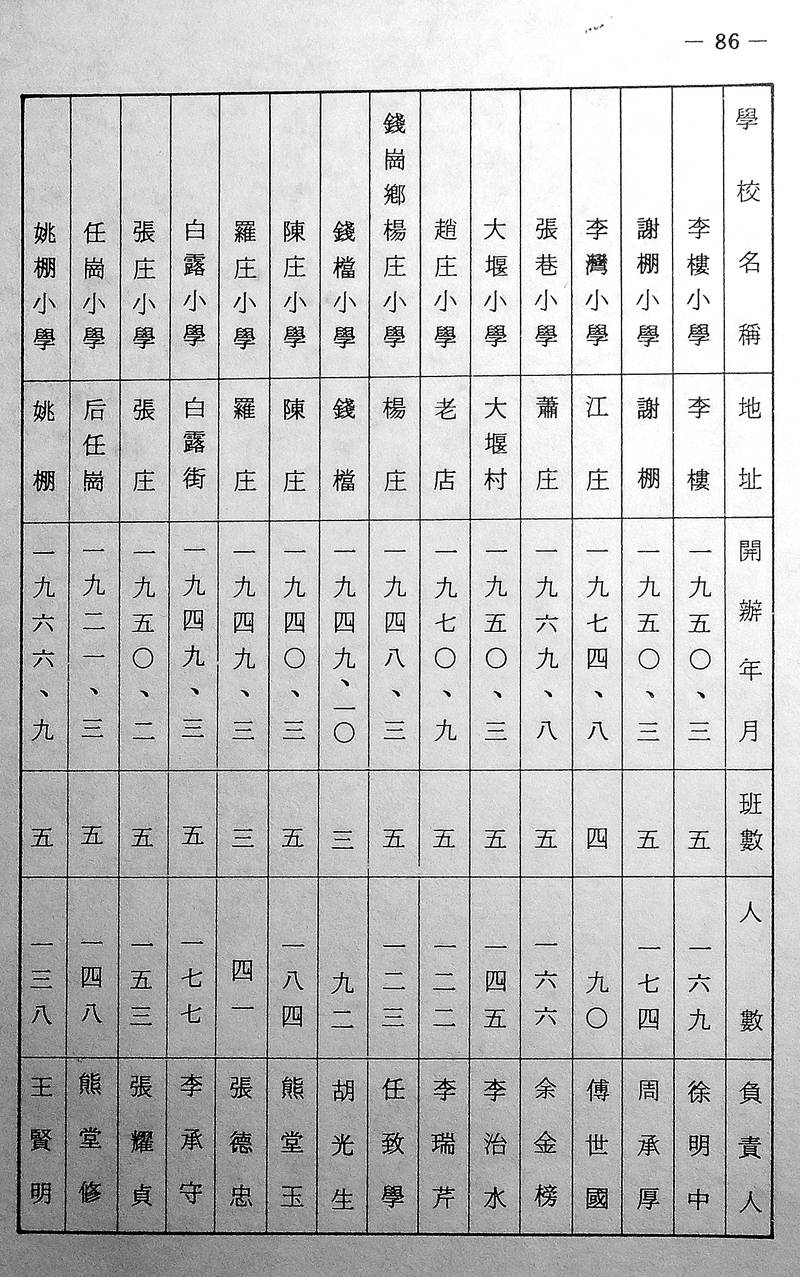 — 86 —
學校名稱 地址 開辦年月 班數 人數 負責人
李樓小學 李樓 一九五〇、三 五 一六九 徐明中
謝棚小學 謝棚 一九五〇、三 五 一七四 周承厚
李灣小學 江庄 一九七四、八 四 九〇 傅世國
張巷小學 蕭庄 一九六九、八 五 一六六 余金榜
大堰小學 大堰村 一九五〇、三 五 一四五 李治水
趙庄小學 老店 一九七〇、九 五 一二二 李瑞芹
錢崗鄉楊庄小學 楊庄 一九四八、三 五 一二三 任致學
錢檔小學 錢檔 一九四九、一〇 三 九二 胡光生
陳庄小學 陳庄 一九四〇、三 五 一八四 熊堂玉
羅庄小學 羅庄 一九四九、三 三 四一 張德忠
白露小學 白露街 一九四九、三 五 一七七 李承守
張庄小學 張庄 一九五〇、二 五 一五三 張耀貞
任崗小學 后任崗 一九二一、三 五 一四八 熊堂修
姚棚小學 姚棚 一九六六、九 五 一三八 王賢明